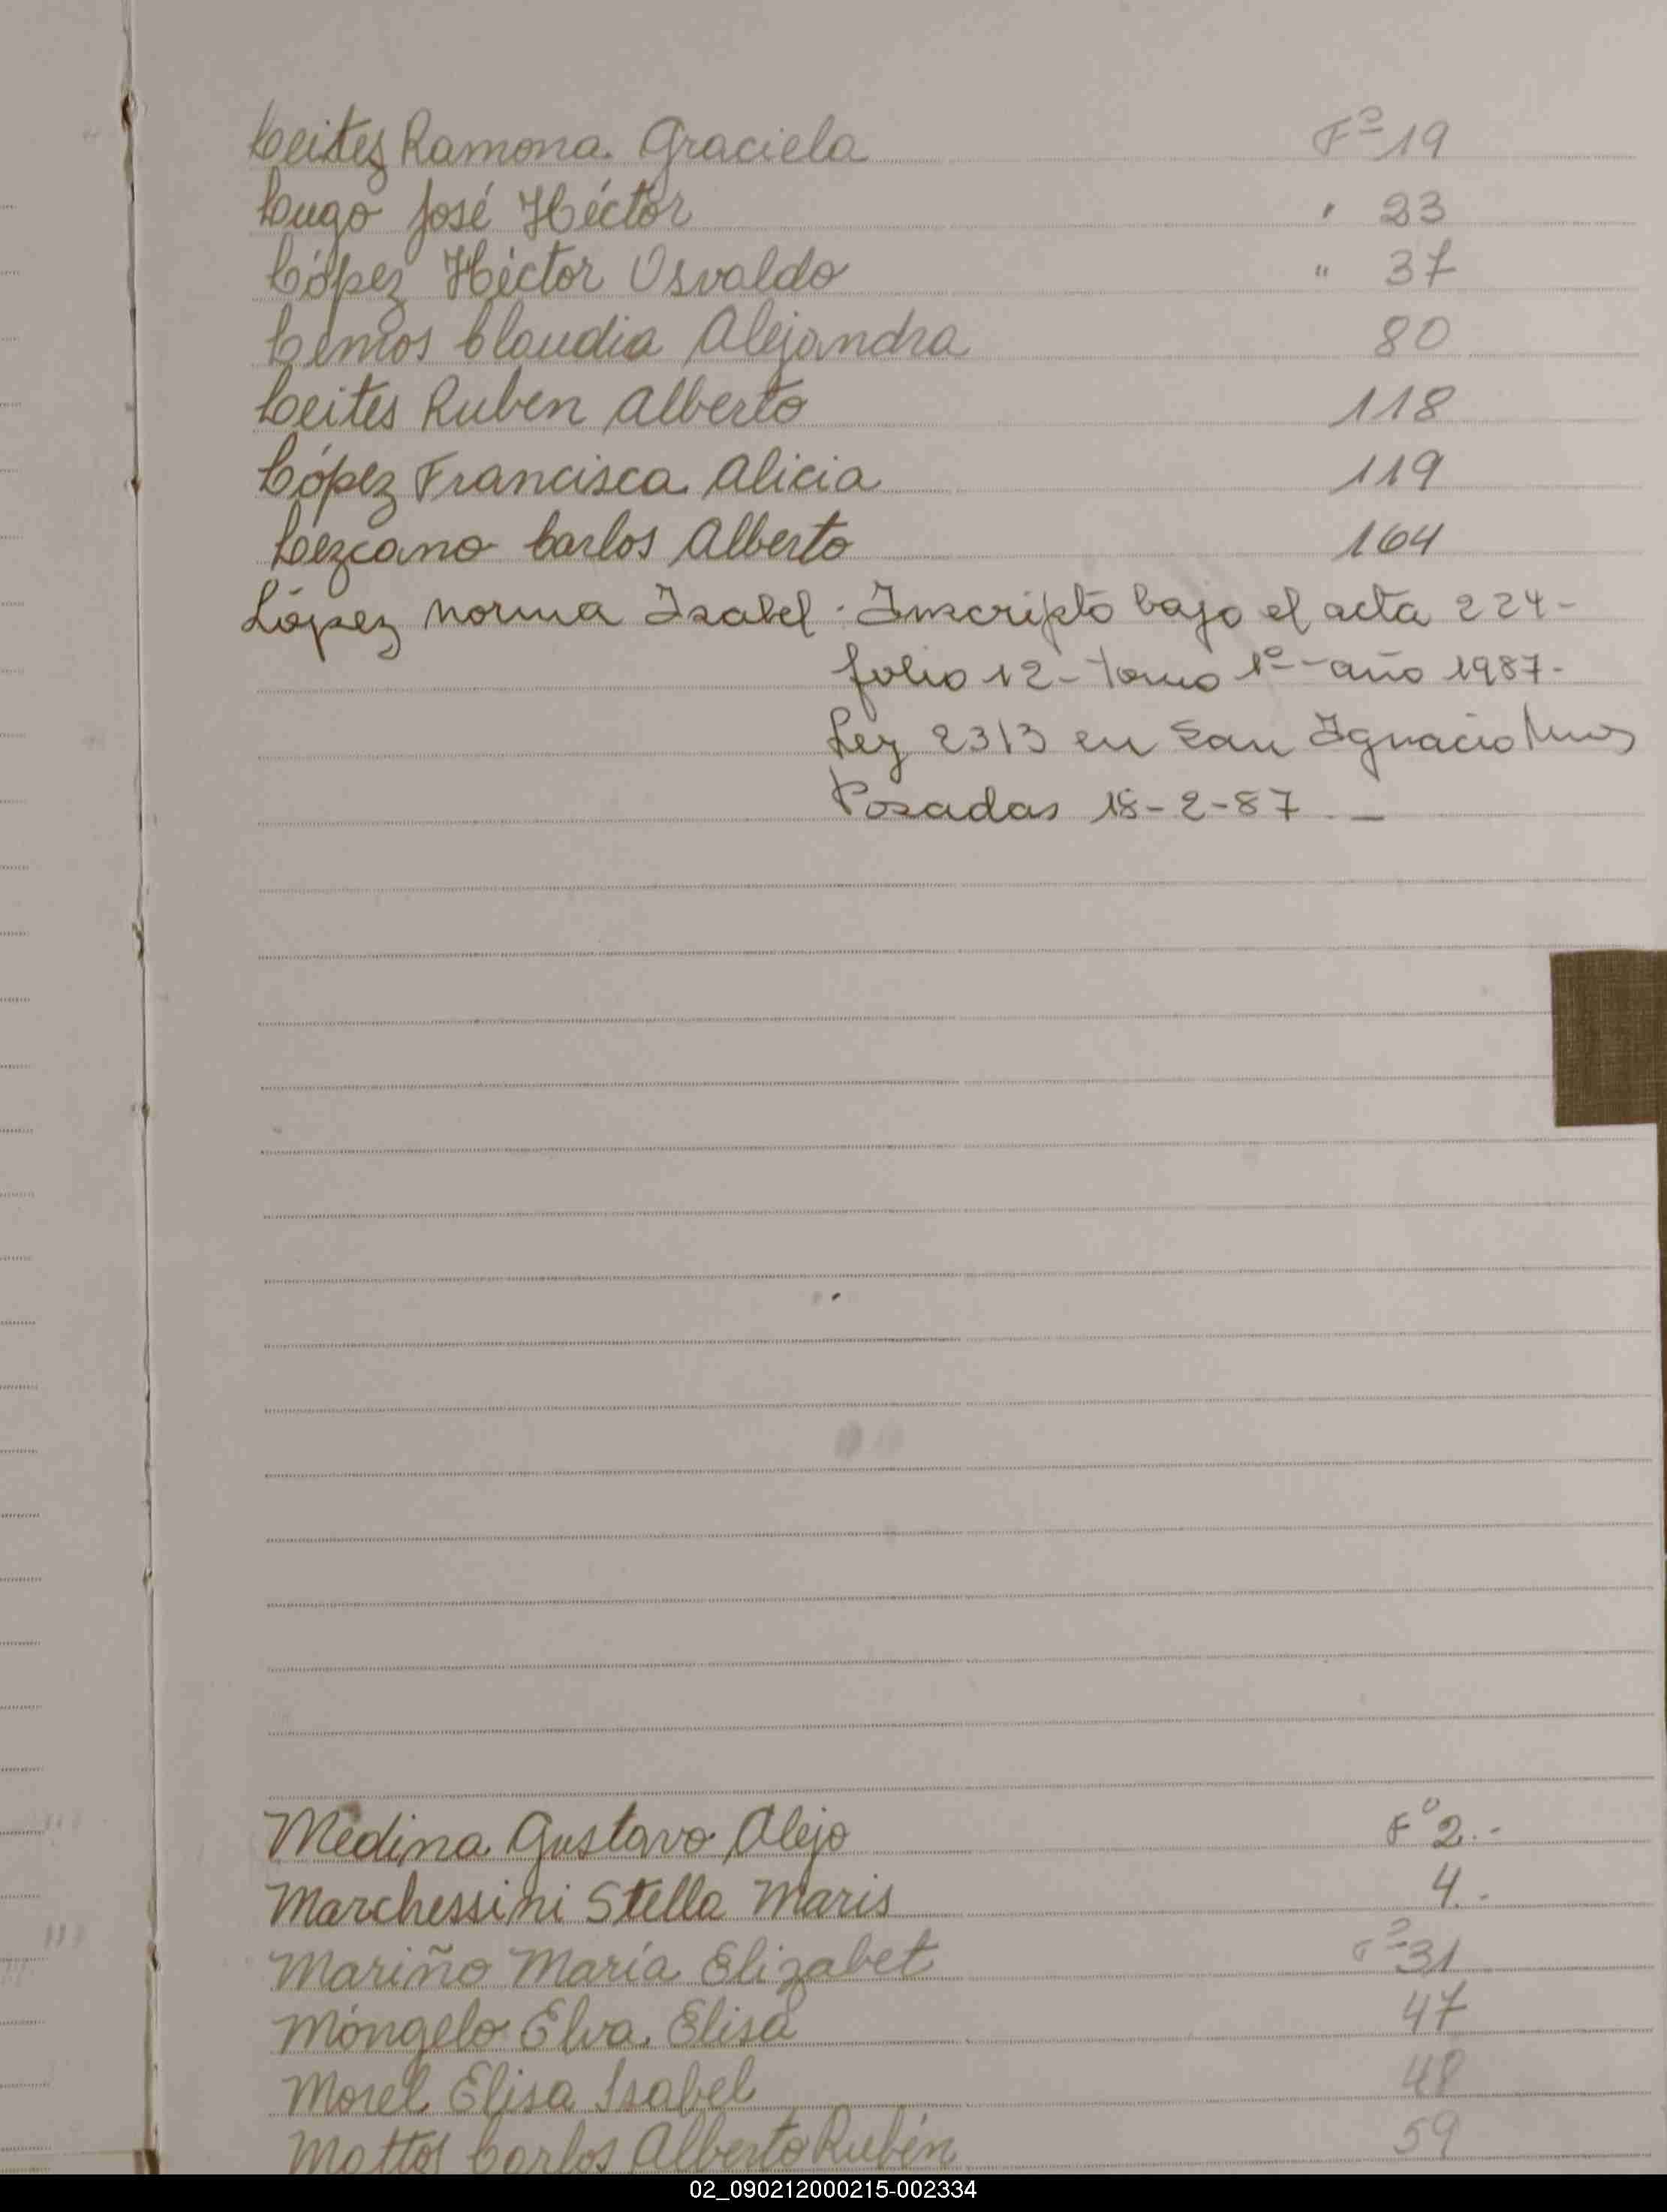 Leites Ramona Graciela F° 19
Lugo José Héctor " 23
López Héctor Osvaldo " 37
Lemos Claudia Alejandra 80
Leites Ruben Alberto 118
López Francisca Alicia 119
Lezcano Carlos Alberto 164
López Norma Isabel - Inscripto bajo el acta 224-
folio 12 - tomo 1° - año 1987-
Ley 2313 en San Ignacio Mnes
Posadas 18-2-87 -
Medina Gustavo Alejo F° 2.-
Marchessini Stella Maris 4.-
Mariño María Elizabet F° 31
Móngelo Elva Elisa 47
Morel Elisa Isabel 48
Mattos Carlos Alberto Rubén 59
02_090212000215-002334